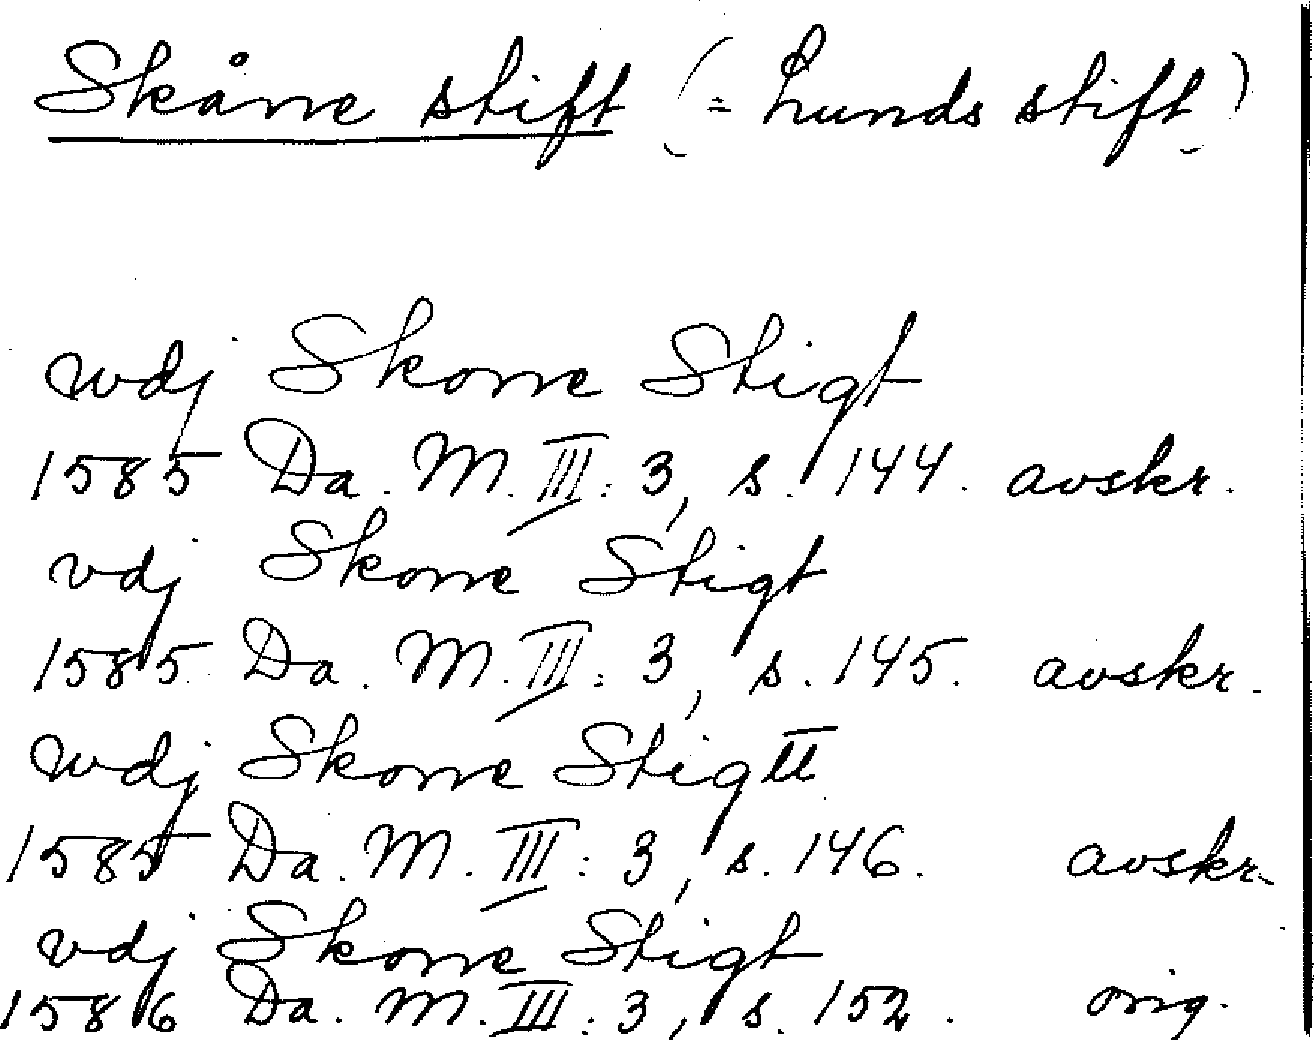 Skåne stift (= Lunds stift)
wdj Skone Stigt
1585 Da. M. III: 3, s. 144. avskr.
vdj Skone Stigt
1585 Da. M. III: 3, s. 145. avskr.
wdj Skone Stigtt
1585 Da. M. III: 3, s. 146. avskr.
vdj Skone Stigt
1586 Da. M. III: 3, s. 152. orig.